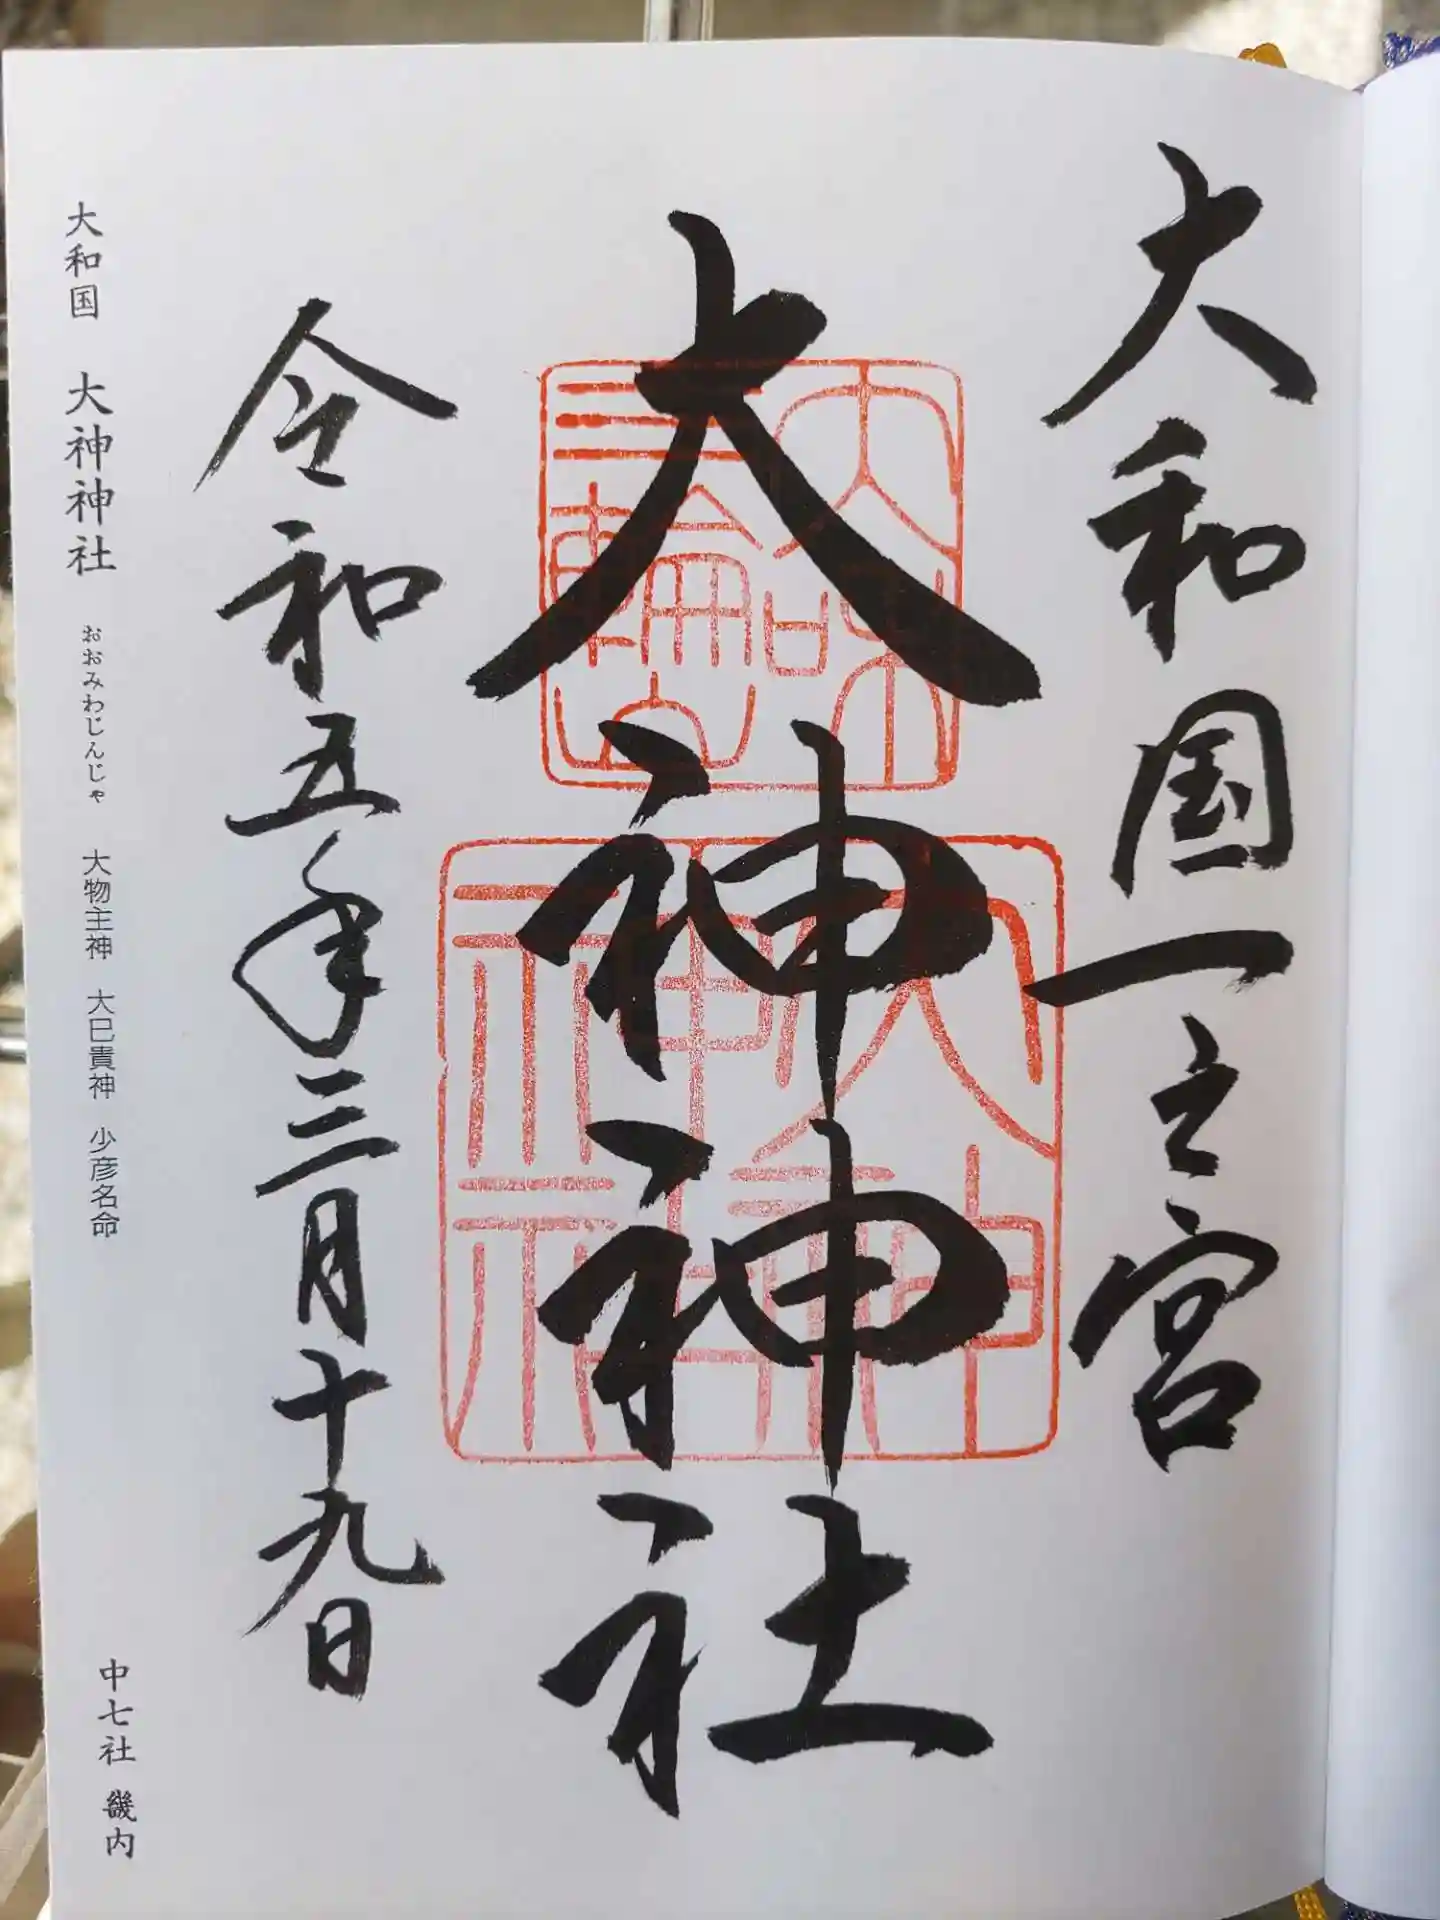 大和国一之宮
大神神社
大味三輪山
大神神社
令和五年三月十九日
大和国 大神神社 おおみわじんじゃ 大物主神 大巳貴神 少彦名命
中七社 畿内